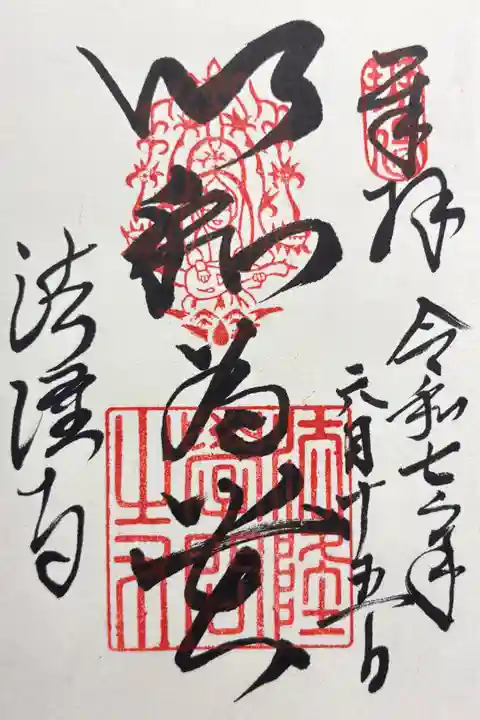 奉拝
令和七年
六月十五日
以和為貴
法隆寺
法隆
學問
之寺